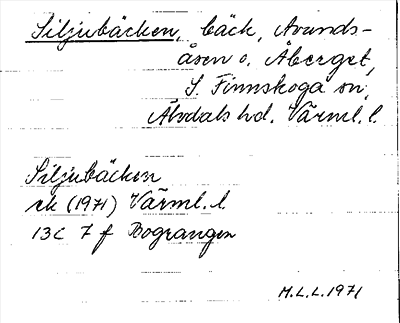 Siljubäcken, bäck, Avunds-
åsen o. Åberget,
S. Finnskoga sn,
Älvdals hd. Värml. l.
Siljubäcken
ek (1971) Värml. l.
13C 7 f Bograngen
M.L.L. 1971